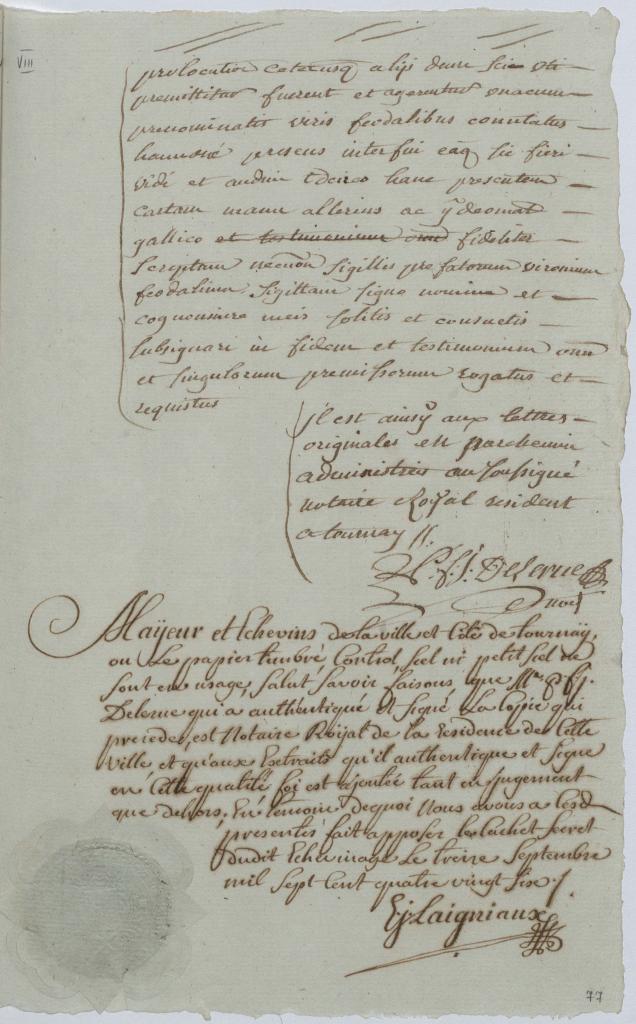 VIII
prolocutioe ceterisq alijs dum sic uti
premittitur fierent et agerentur unacum
prenominatis viris feodalibus convocatus
presens interfui eaq sic fieri
vidi et audivi Idcirco hanc presentem
cartam manu alterius ac
gallico et testimonium omn fideliter
scriptam necnon sigillis prefatorum virorum
feodalium sigillatam signo nomine et
cognomine meis solitis et consuetis
subsignavi in fidem et testimonium omn
et singulorum premissorum rogatus et
requisitus
il est ainsy aux lettres
originales en parchemin
administrées au soussigné
notaire Royal resident
a tournay //.
P. f. J. Delerue
not
Mayeur et Echevins de la ville et Cité de tournay,
ou le papier timbré, Control, scel ni petit scel ne
sont en usage, salut savoir faisons, que Mtre P. f. j.
Delerue qui a authentiqué et signé la copie qui
precede, est Notaire Roijal de la residence de Cette
ville et qu'aux Extraits qu'il authentique et signe
en Cette qualité foi est ajoutée tant en jugement
que dehors, En temoin dequoi Nous avons a lesd
presentes fait apposer le Cachet secret
dudit Echevinage le treize Septembre
mil sept Cent quatre vingt six ./.
Ej Laigniaux
77